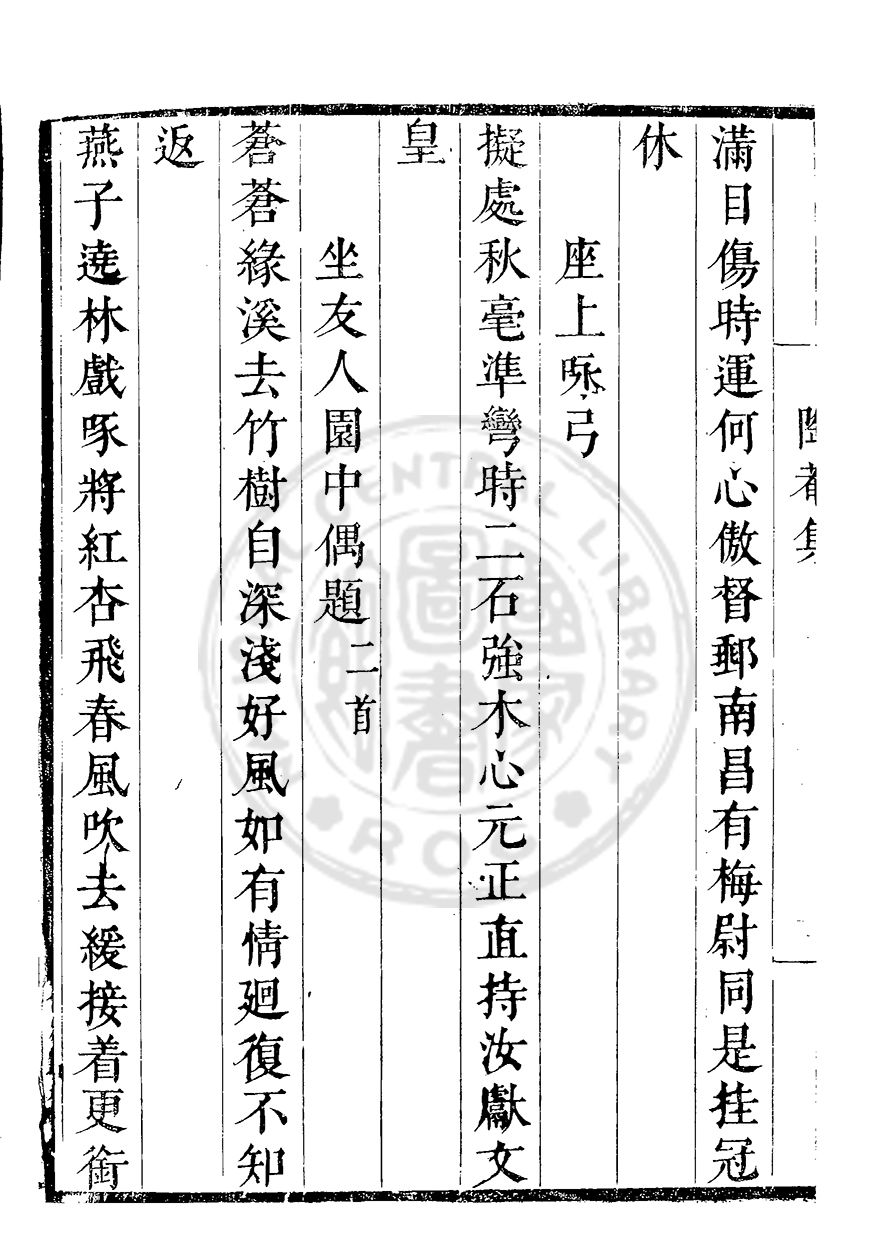 滿目傷時運何心傲督郵南昌有梅尉同是挂冠
休
座上咏弓
擬處秋毫準彎時二石強木心元正直持汝獻文
皇
坐友人園中偶題二首
蒼蒼緣溪去竹樹自深淺好風如有情廻復不知
返
燕子遶林戲啄將紅杏飛春風吹去緩接着更銜
CENTRAL LIBRARY